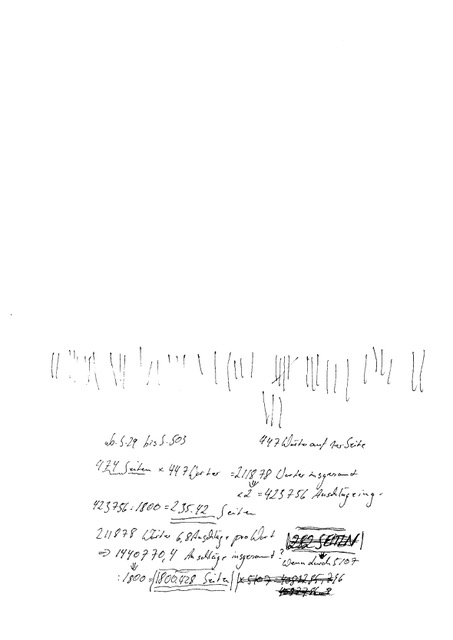 ab S. 29 bis S. 503 447 Wörter auf 1er Seite
474 Seiten x 447 Wörter = 211878 Wörter insgesamt
x 2 = 423756 Anschläge ing.
423756 : 1800 = 235.42 Seiten
211878 Wörter 6,8 Anschläge pro Wort 282 SEITEN
=> 1440770,4 Anschläge insgesamt? Wenn durch 5107
: 1800 = 1800.428 Seiten x 5107